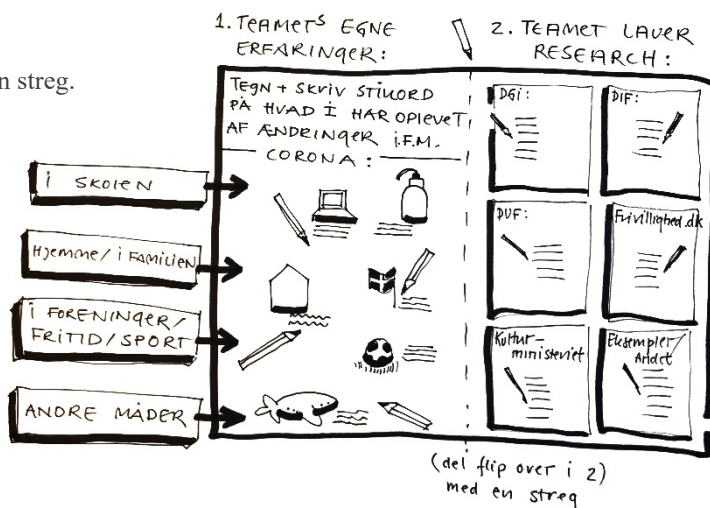 n streg.
1. TEAMETS EGNE
ERFARINGER:
2. TEAMET LAVER
RESEARCH:
TEGN + SKRIV STIKORD
PÅ HVAD I HAR OPLEVET
AF ÆNDRINGER i.F.M.
CORONA:
I SKOLEN
HJEMME/ I FAMILIEN
I FORENINGER/
FRITID/SPORT
ANDRE MÅDER
DGI:
DIF:
DUF:
Frivillighed.dk
Kultur-
ministeriet
Eksempler/
Andet
(del flip over i 2)
med en streg